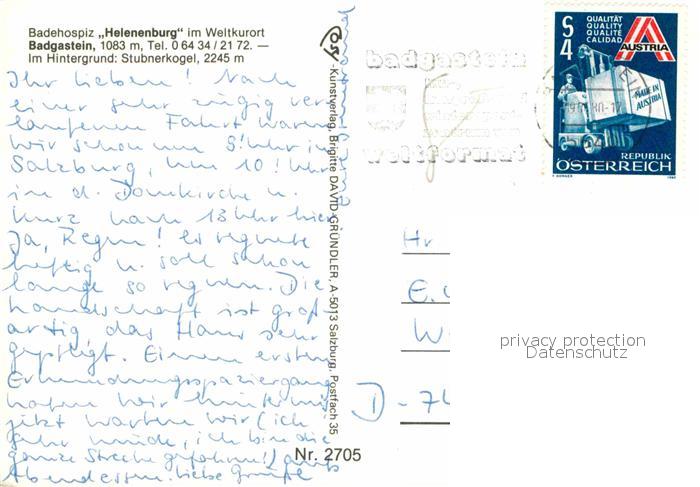 Badehospiz „Helenenburg" im Weltkurort
Badgastein, 1083 m, Tel. 0 64 34 / 21 72. —
Im Hintergrund: Stubnerkogel, 2245 m
Ihr Lieben! Nach
einer sehr zügig ver-
laufenen Fahrt waren
wir schon um 8 Uhr in
Salzburg, um 10! Uhr
in d. Domkirche u.
kurz nach 13 Uhr hier
Ja, Regen! es regnete
heftig u. soll schon
lange so regnen. Die
Landschaft ist groß
artig das Haus sehr
gepflegt. Einen ersten
Erkundungsspaziergang
haben wir hinter uns
jetzt warten wir (ich
sehr müde, ich bin die
ganze Strecke gefahren!) aufs
Abendessen. Liebe Grüße
Cosy-Kunstverlag, Brigitte DAVID-GRÜNDLER, A-5013 Salzburg, Postfach 35
Nr. 2705
badgastein
weltformat
S 4
QUALITÄT
QUALITY
QUALITÉ
CALIDAD
AUSTRIA
MADE IN
AUSTRIA
REPUBLIK
ÖSTERREICH
1980
Hr
E.
W
D - 74
privacy protection
Datenschutz